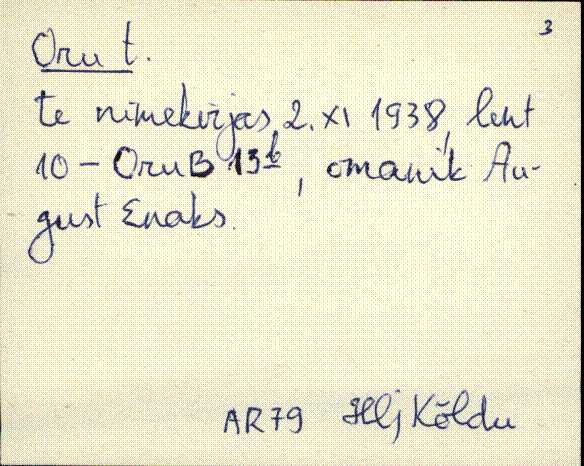 3
Oru t.
te nimekirjas, 2. XI 1938, leht
10 – Oru B 13b, omanik Au-
gust Enaks.
AR79 Hlj Kõldu